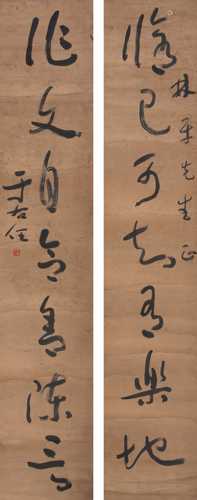 林平先生正
脩己可知有樂地
作文自陳言
于右任